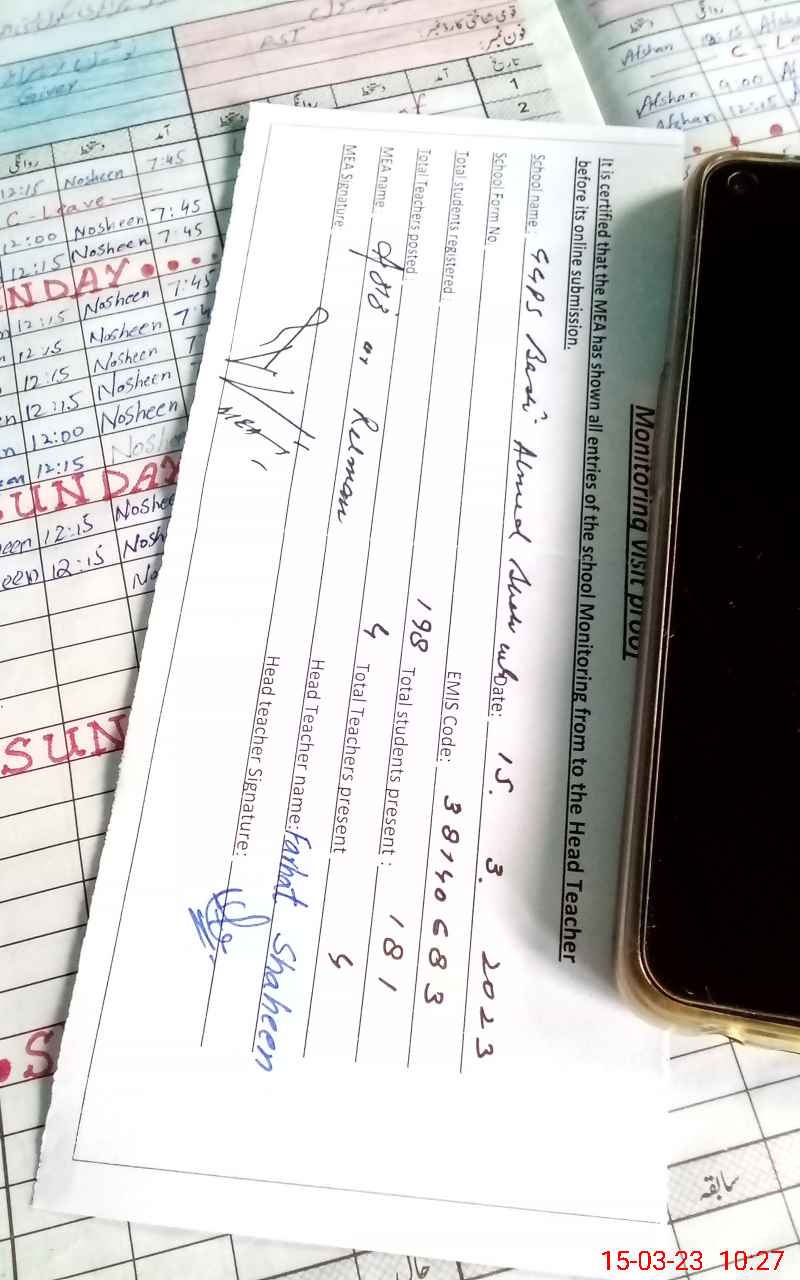 Monitoring visit proof
It is certified that the MEA has shown all entries of the school Monitoring from to the Head Teacher
before its online submission.
School name: GGPS Ahmed Date: 15. 3. 2023
School Form No. EMIS Code:
Total students registered: 198 Total students present: 181
Total Teachers posted: 4 Total Teachers present 4
MEA name Rehman Head Teacher name: Farhat Shaheen
MEA Signature Head teacher Signature:
قومی شناختی کارڈ نمبر:
فون نمبر:
PST
تاریخ آمد دستخط
1
2
روانگی دستخط آمد
12:15 Nosheen 7:45
C-Leave
12:00 Nosheen 7:45
12:15 Nosheen 7:45
NDAY
12:15 Nosheen 7:45
12:15 Nosheen
12:15 Nosheen
12:15 Nosheen
12:00 Nosheen
12:15
SUNDAY
12:15 Noshee
12:15 Nosh
No
SUN
S
Afshan 12:15
Afshan 9:00
Afshan 12:15
سابقہ
حال
15-03-23 10:27